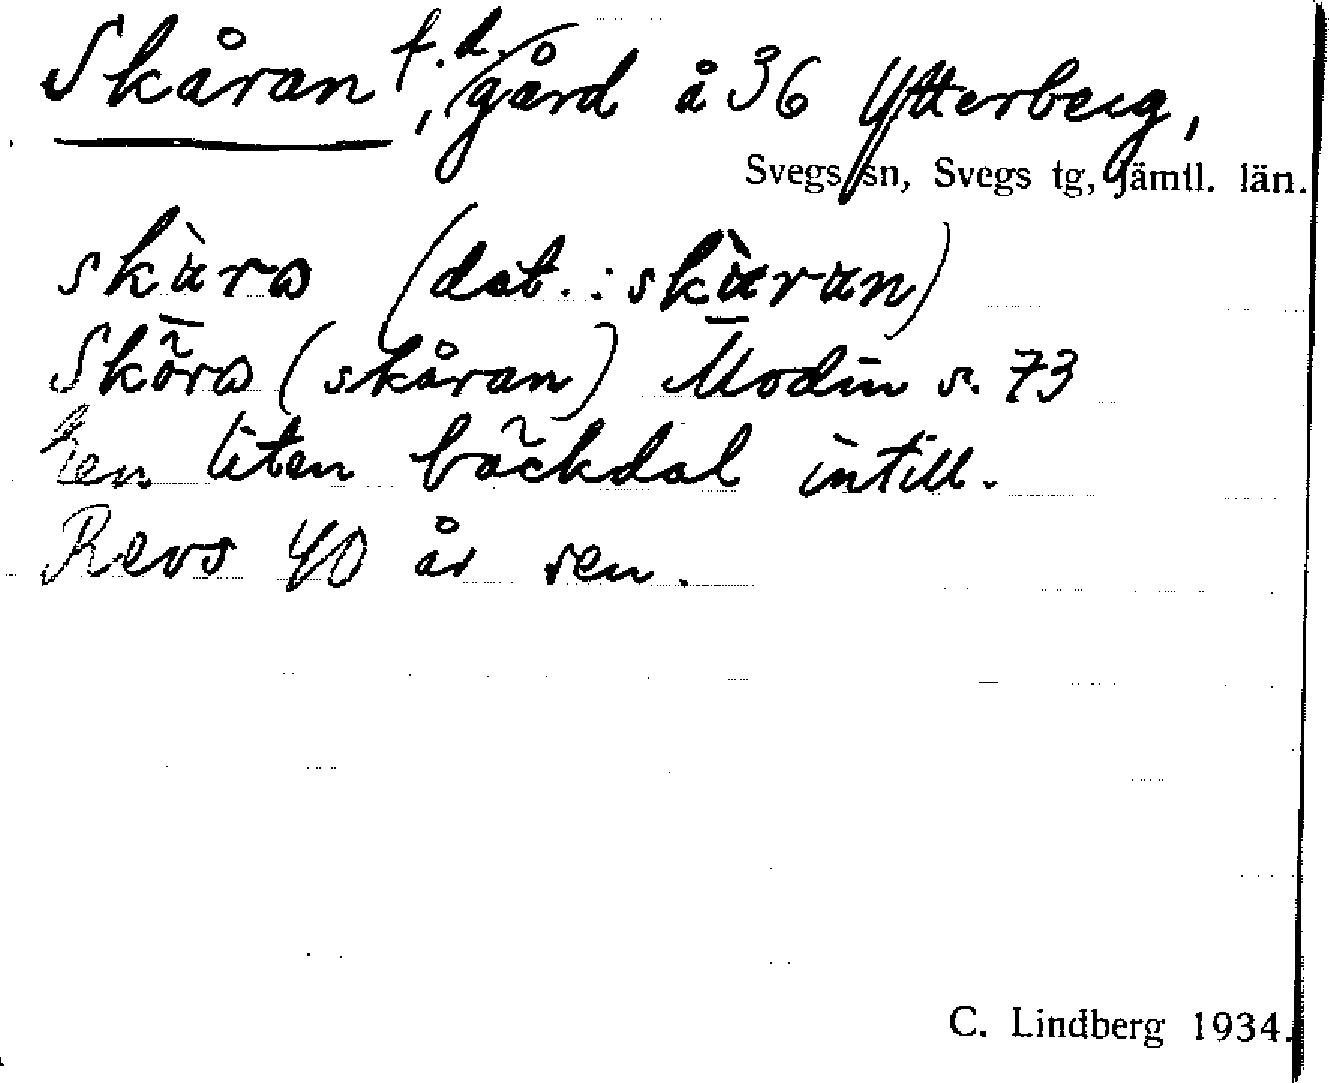 Skåran, f.d. gård å 36 Ytterberg,
Svegs sn, Svegs tg, Jämtl. län.
skàra (dat.: skàran)
Sköra (skåran) Modin s. 73
En liten bäckdal intill.
Revs 40 år sen.
C. Lindberg 1934.